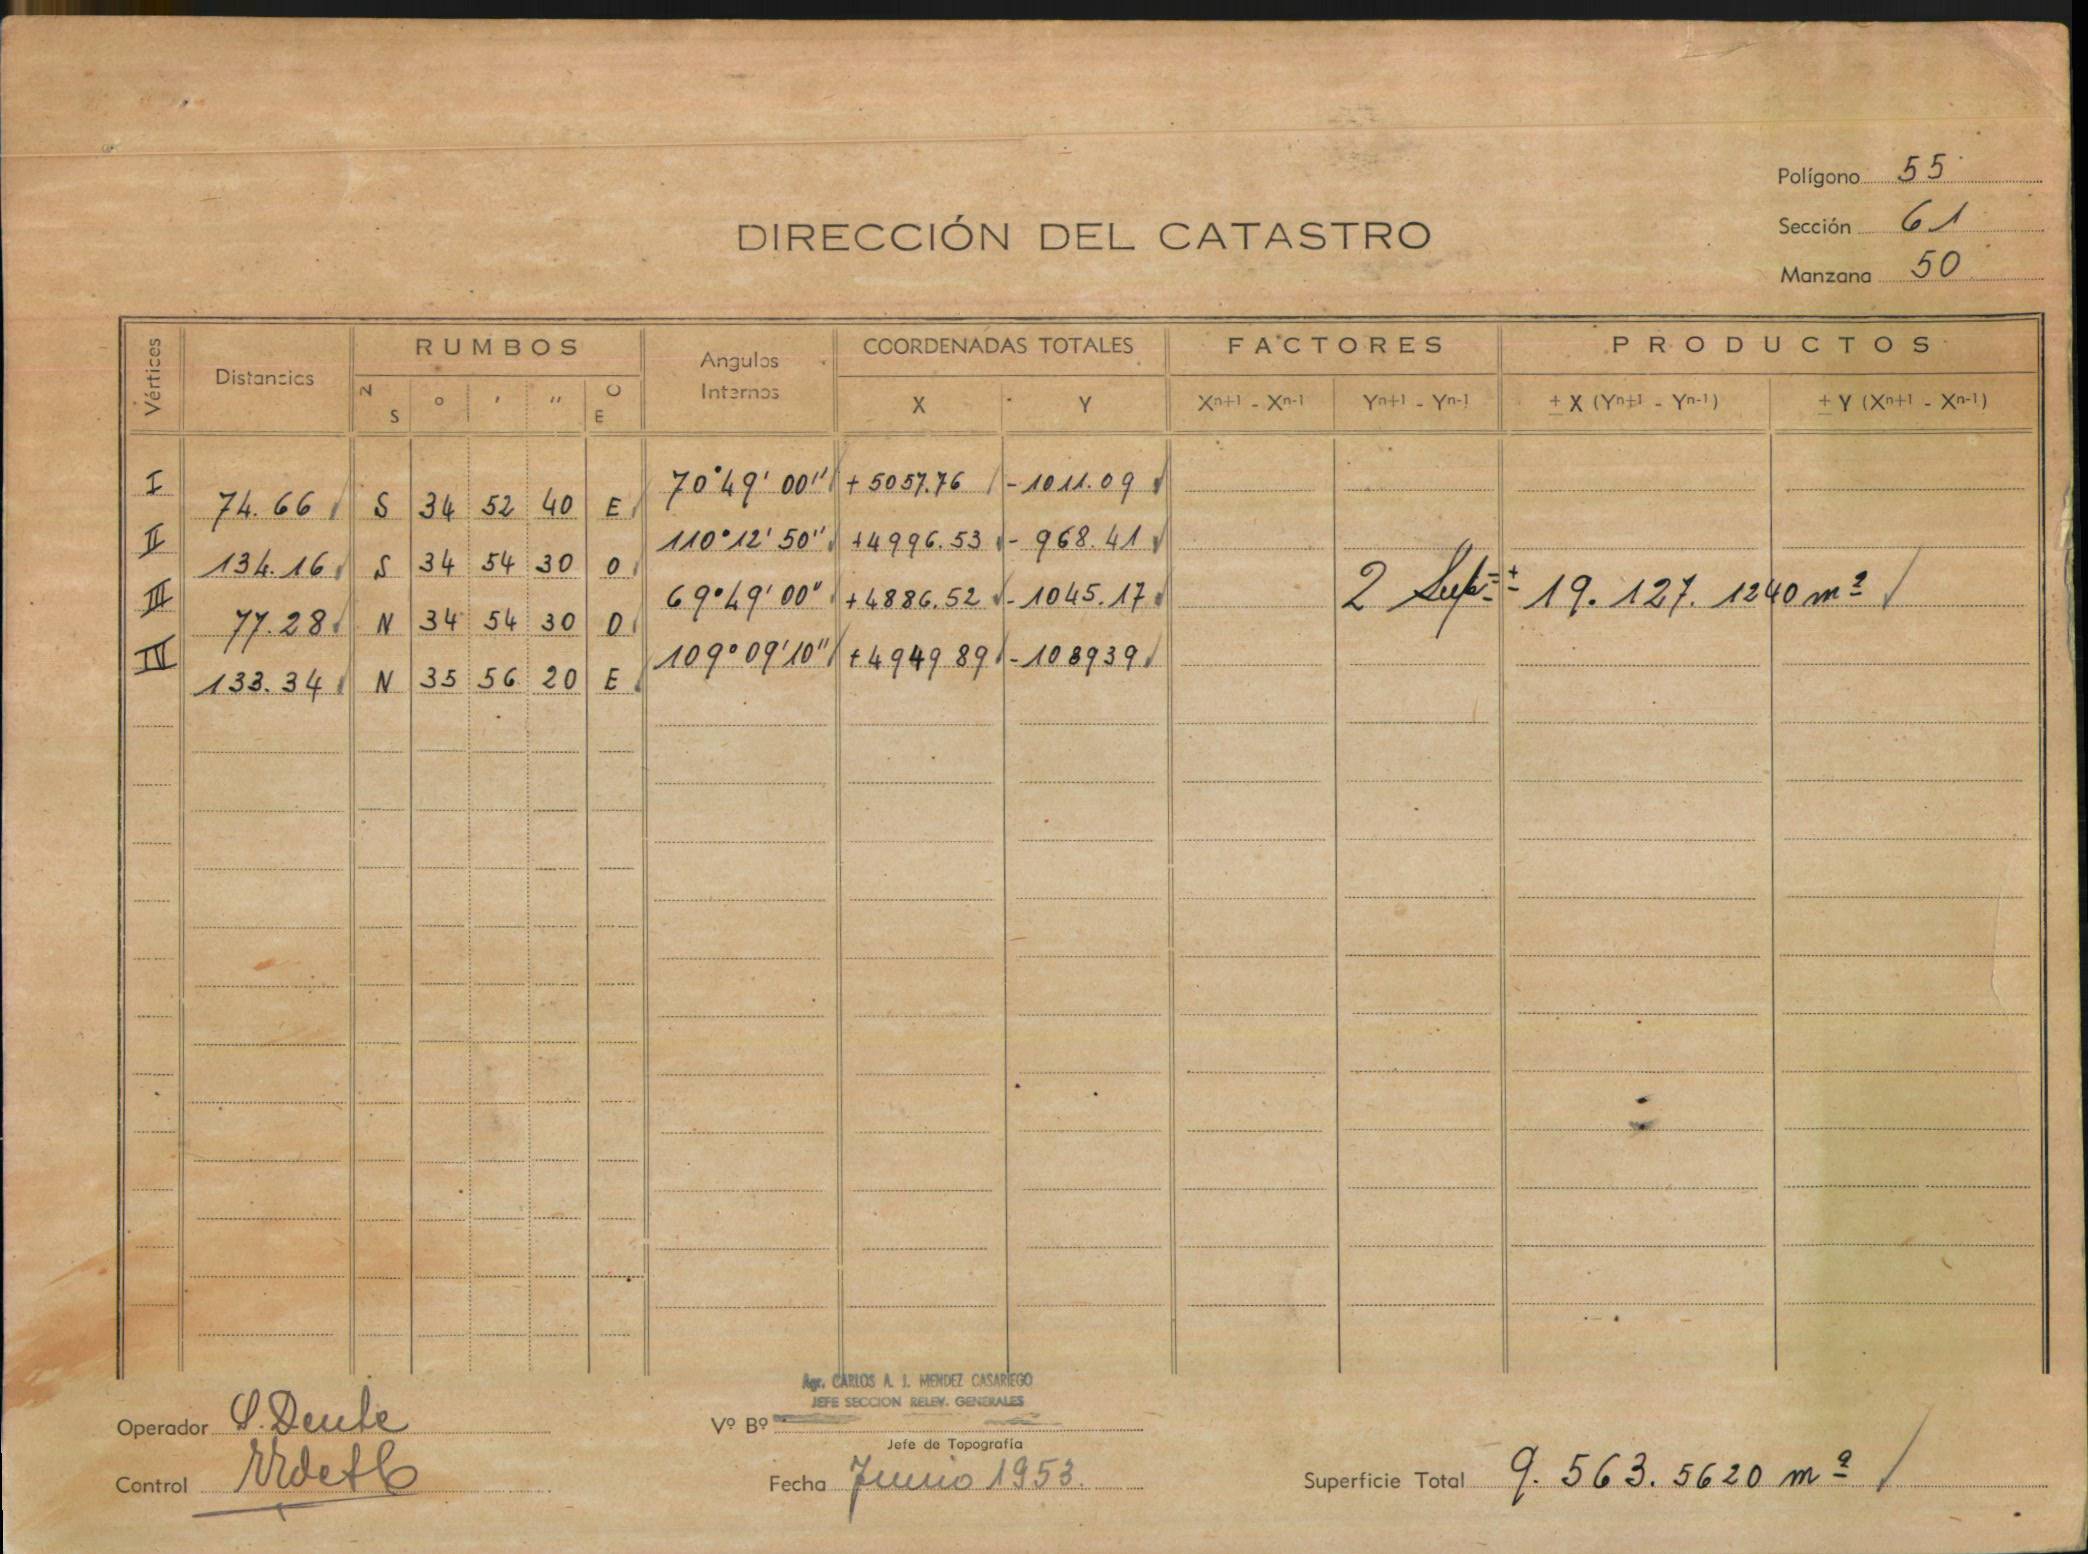 Polígono 55
Sección 61
Manzana 50
DIRECCIÓN DEL CATASTRO
Vértices
Distancias
RUMBOS
N S ° ' '' O E
Angulos
Internos
COORDENADAS TOTALES
X Y
FACTORES
Xn+1 - Xn-1 Yn+1 - Yn-1
PRODUCTOS
± X (Yn+1 - Yn-1) ± Y (Xn+1 - Xn-1)
I 70°49'00" +5057.76 -1011.09
74.66 S 34 52 40 E
II 110°12'50" +4996.53 - 968.41
134.16 S 34 54 30 O
III 69°49'00" +4886.52 -1045.17
2 Sup. = ± 19.127.1240 m2
77.28 N 34 54 30 O
IV 109°09'10" +4949 89 -108939
133.34 N 35 56 20 E
Agr. CARLOS A. J. MENDEZ CASARIEGO
JEFE SECCION RELEV. GENERALES
Operador
Vº Bº
Jefe de Topografía
Control
Fecha Junio 1953.
Superficie Total 9.563.5620 m2